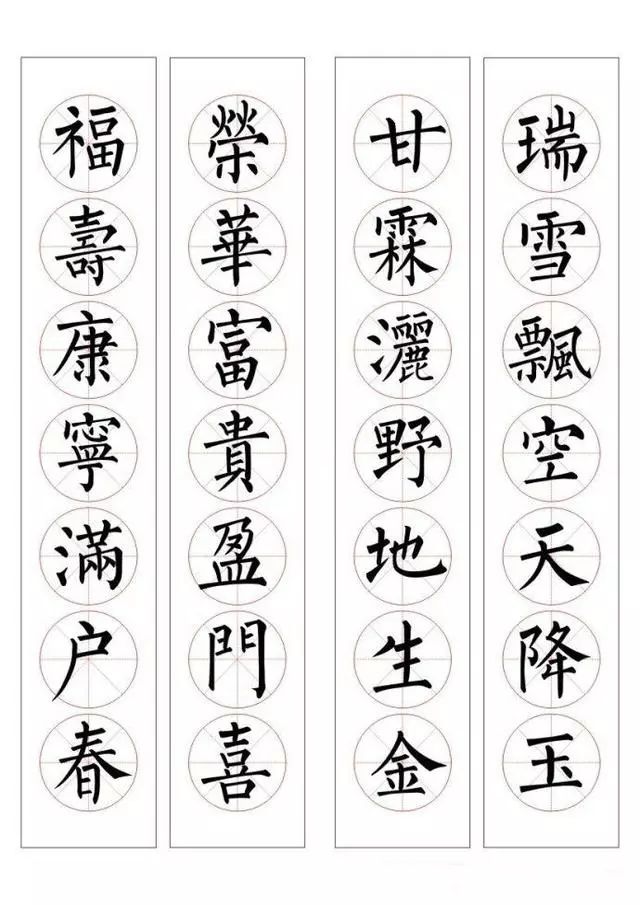 瑞雪飄空天降玉
甘霖灑野地生金
榮華富貴盈門喜
福壽康寧滿户春